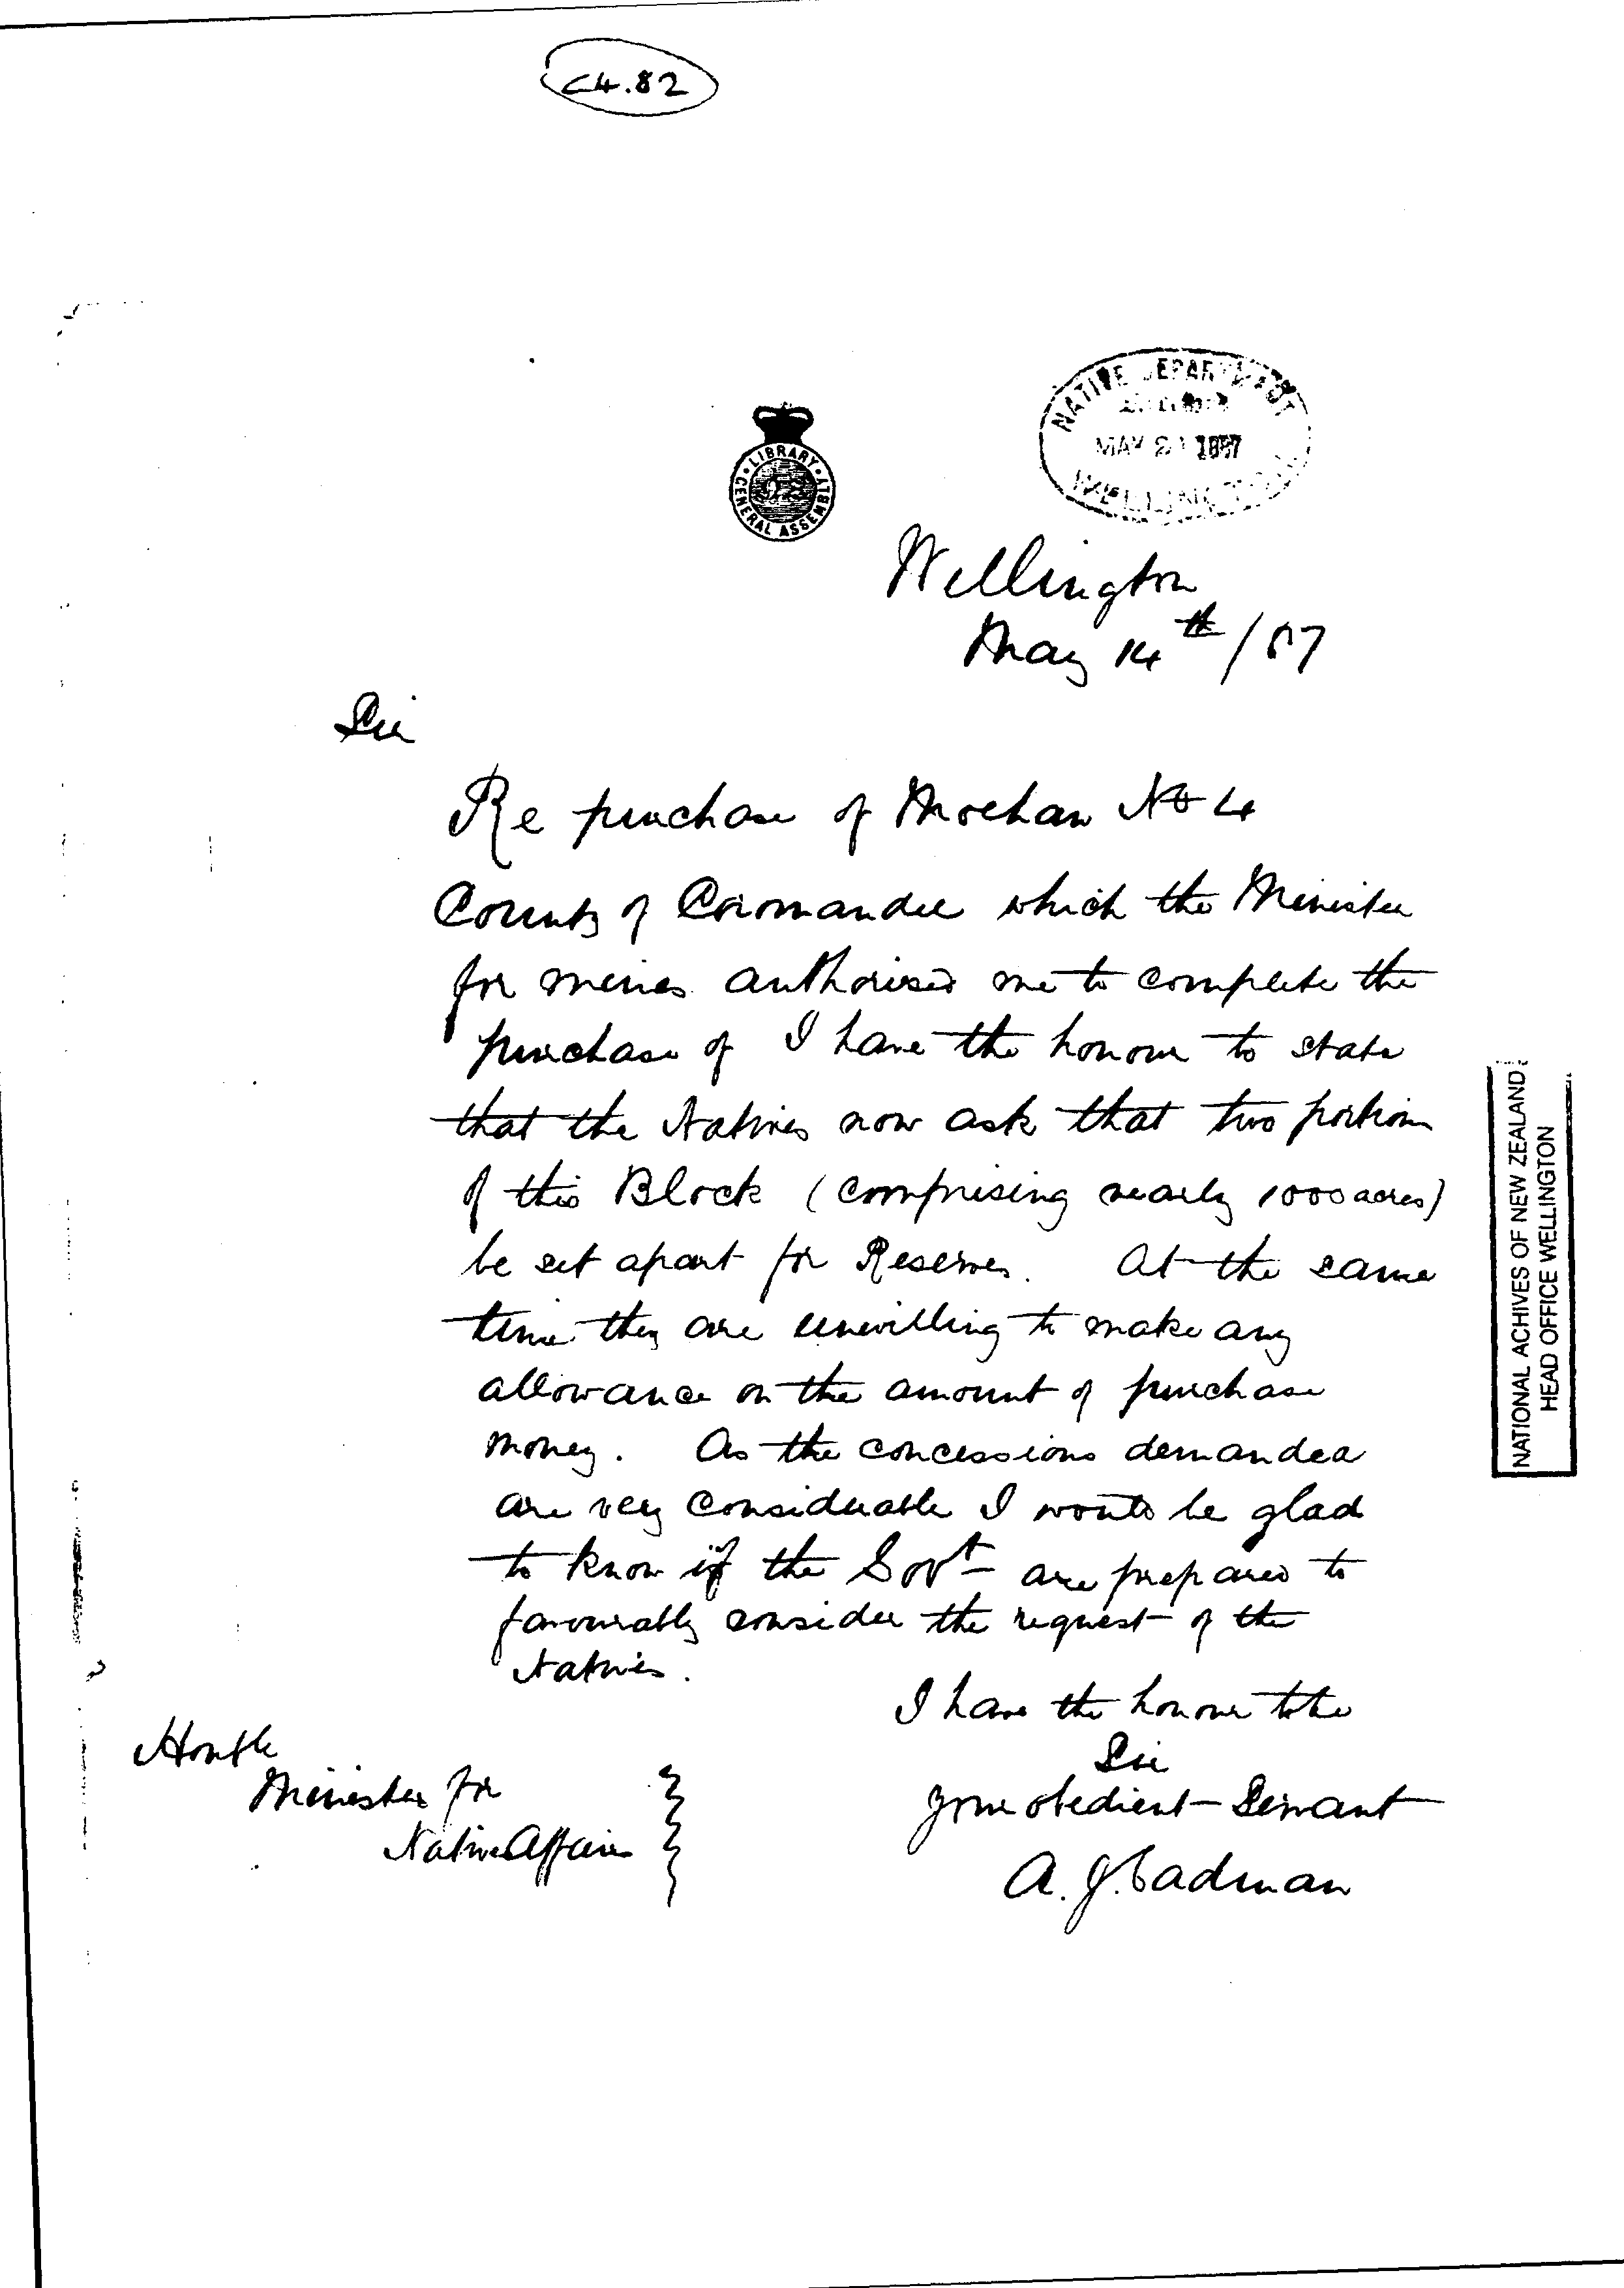 C4.82
NATIVE DEPARTMENT
MAY 21 1887
WELLINGTON
LIBRARY
GENERAL ASSEMBLY
Wellington
May 14th/87
Sir
Re purchase of Moehau No 4
County of Coromandel which the Minister
for mines authorised me to complete the
purchase of I have the honour to state
that the Natives now ask that two portions
of this Block (comprising nearly 1000 acres)
be set apart for Reserves. At the same
time they are unwilling to make any
allowance on the amount of purchase
money. As the concessions demanded
are very considerable I would be glad
to know if the Govt are prepared to
favourably consider the request of the
Natives.
I have the honour to be
Sir
Your obedient Servant
A. J. Cadman
Honble
Minister for
Native Affairs
NATIONAL ACHIVES OF NEW ZEALAND
HEAD OFFICE WELLINGTON